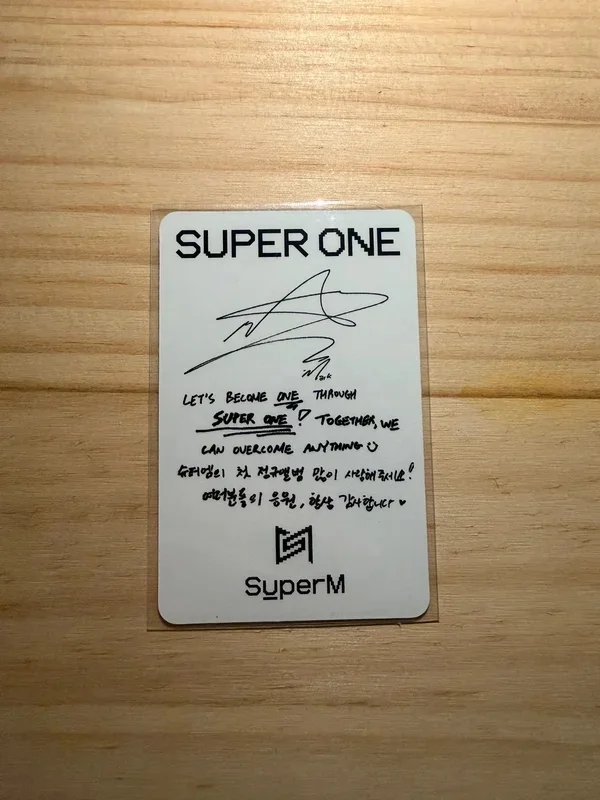 SUPER ONE
Mark
LET'S BECOME ONE THROUGH
SUPER ONE! TOGETHER, WE
CAN OVERCOME ANYTHING
슈퍼엠의 첫 정규앨범 많이 사랑해주세요!
여러분들의 응원, 항상 감사합니다 ♥
SuperM